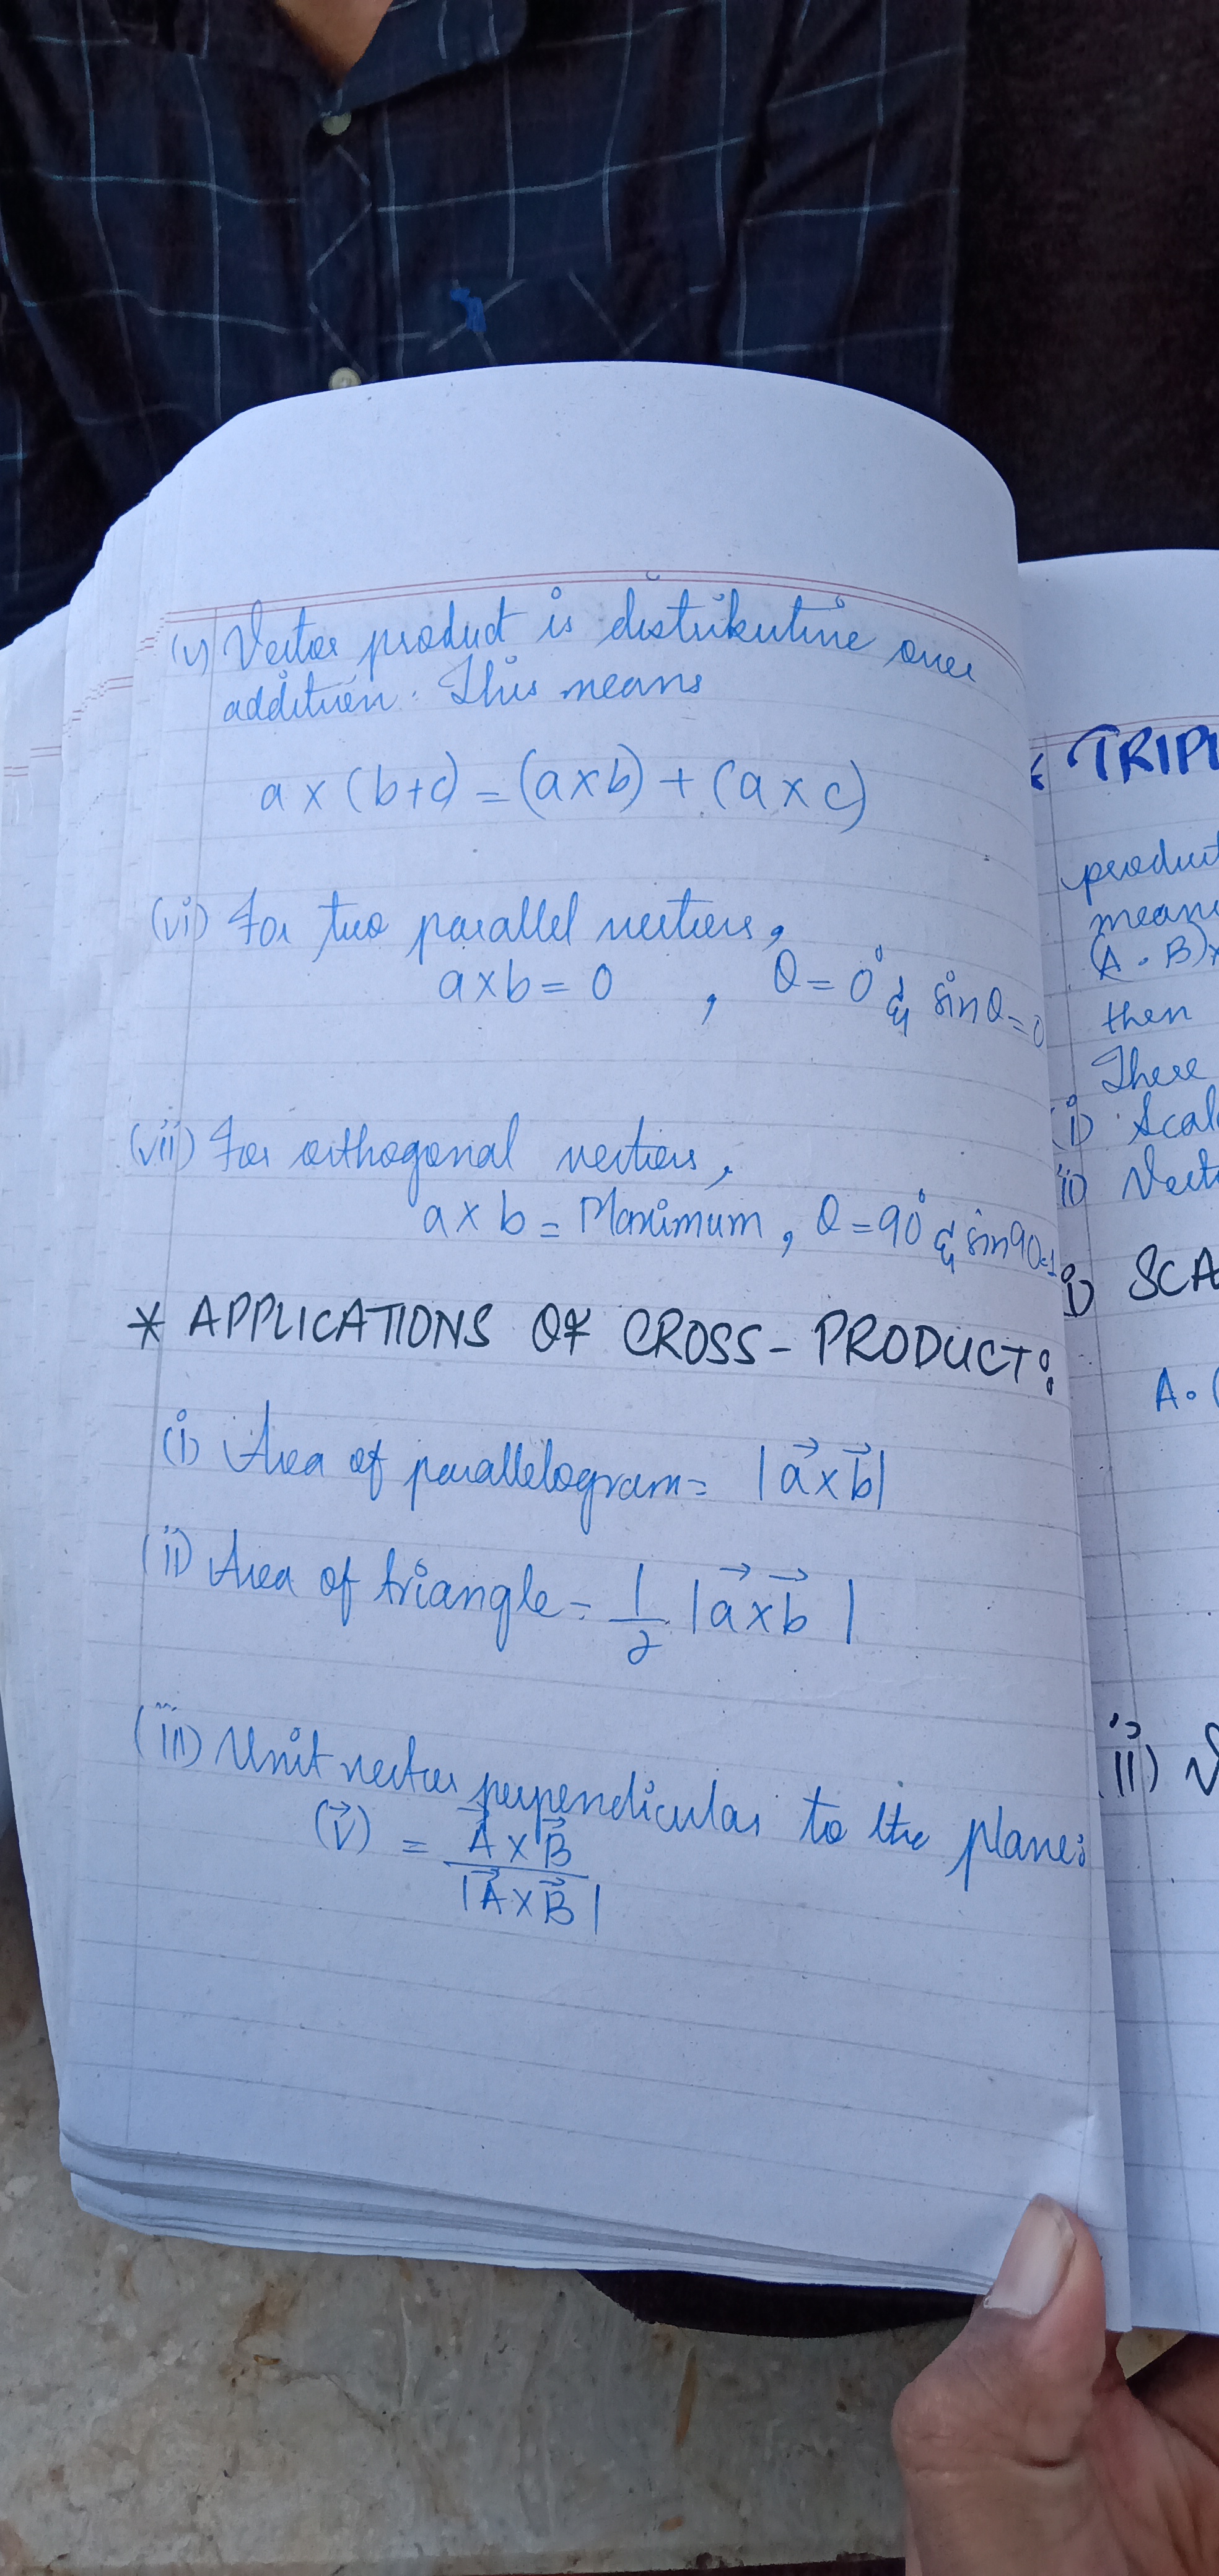 (v) Vector product is distributive over
addition. This means
a x (b+c) = (a x b) + (a x c)
(vi) For two parallel vectors,
a x b = 0 , θ = 0° & sin θ = 0
(vii) For orthogonal vectors,
a x b = Maximum, θ = 90° & sin 90 = 1
* APPLICATIONS OF CROSS - PRODUCT:
(i) Area of parallelogram = |a⃗ x b⃗|
(ii) Area of triangle = 1/2 |a⃗ x b⃗|
(iii) Unit vector perpendicular to the plane:
(V⃗) = A⃗ x B⃗ / |A⃗ x B⃗|
TRIPL
product
means
(A . B) x
then
There
(i) Scal
(ii) Vect
i) SCA
A . (
(ii) V